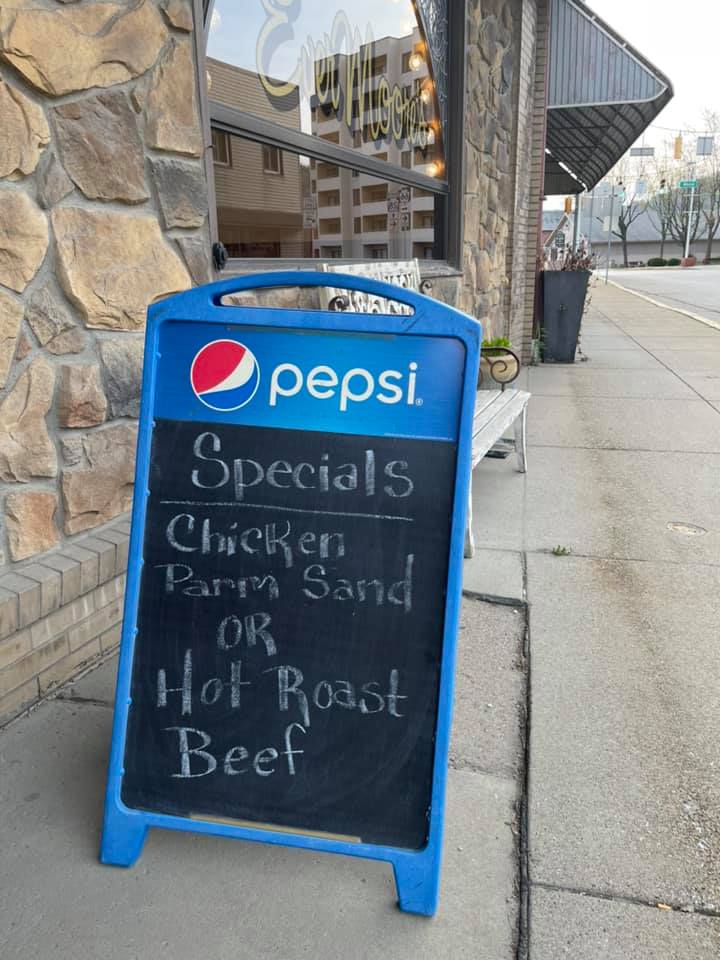 EvenMoore's
pepsi
Specials
Chicken
Parm Sand
OR
Hot Roast
Beef